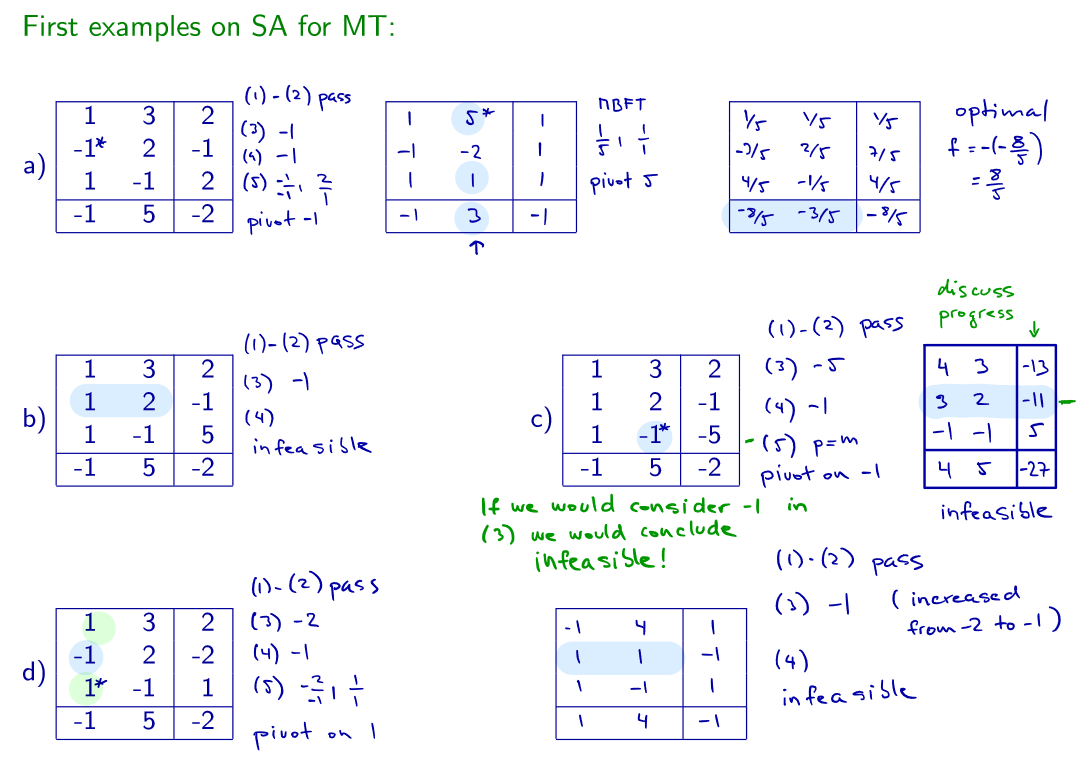 First examples on SA for MT:
a)
1 3 2
-1* 2 -1
1 -1 2
-1 5 -2
(1)-(2) pass
(3) -1
(4) -1
(5) -1/-1, 2/1
pivot -1
1 5* 1
-1 -2 1
1 1 1
-1 3 -1
↑
MBFT
1/5, 1/1
pivot 5
1/5 1/5 1/5
-3/5 2/5 7/5
4/5 -1/5 4/5
-8/5 -3/5 -8/5
optimal
f = -(-8/5)
= 8/5
b)
1 3 2
1 2 -1
1 -1 5
-1 5 -2
(1)-(2) pass
(3) -1
(4)
infeasible
c)
1 3 2
1 2 -1
1 -1* -5
-1 5 -2
(1)-(2) pass
(3) -5
(4) -1
-(5) p=m
pivot on -1
discuss
progress
↓
4 3 -13
3 2 -11 -
-1 -1 5
4 5 -27
infeasible
If we would consider -1 in
(3) we would conclude
infeasible!
d)
1 3 2
-1 2 -2
1* -1 1
-1 5 -2
(1)-(2) pass
(3) -2
(4) -1
(5) -2/-1, 1/1
pivot on 1
-1 4 1
1 1 -1
1 -1 1
1 4 -1
(1)-(2) pass
(3) -1 (increased
from -2 to -1)
(4)
infeasible